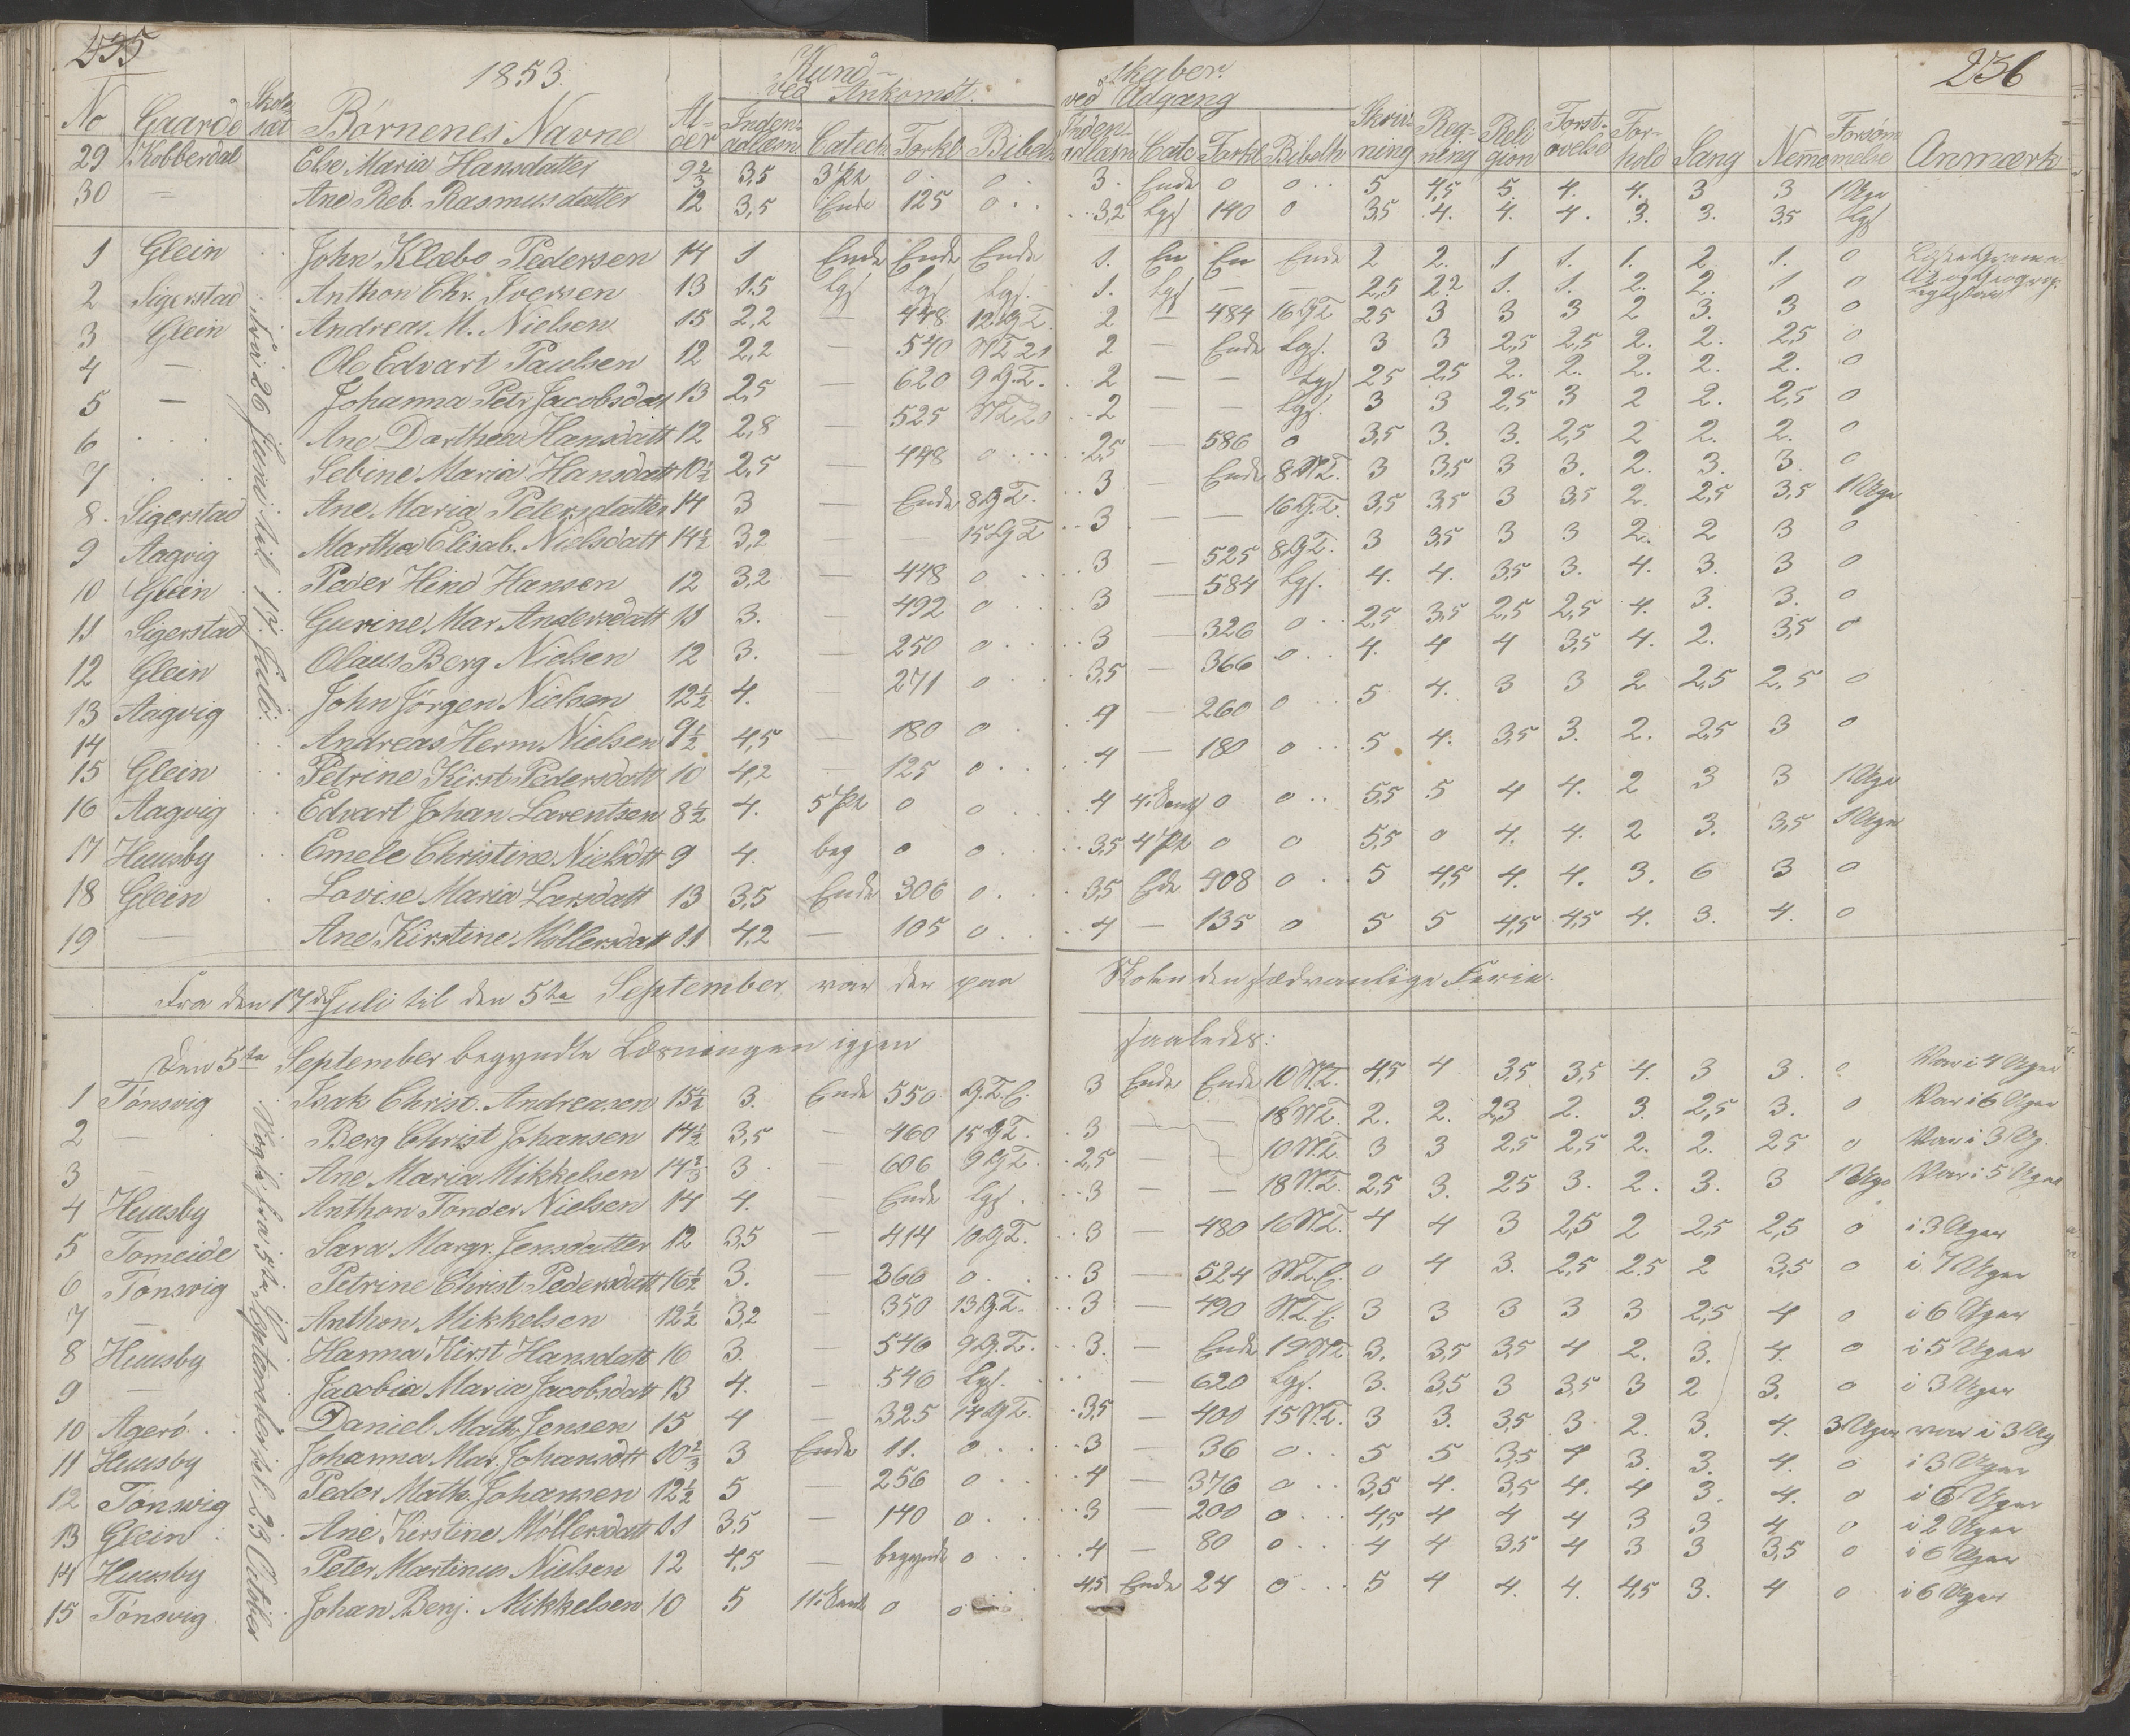 235
1853.
Kund-
ved Ankomst.
skaber.
ved Udgang
236
No Gaarde Skole sæt Børnenes Navne Al- der Inden- adlæsn Catech. Forkl Bibelh
Inden- adlæsn Cate Forkl Bibelh Skriv- ning Reg- ning Reli gion Forst- ovelse For- hold Sang Nemme Forsøm melse Anmærk
29 Kobberdal Else Maria Hansdatter 9 2/3 3,5 3 Pt 0 0 3. Ende 0 0 5 4,5 5. 4. 4. 3 3 1 Uge
30 – Ane Reb. Rasmusdatter 12 3,5 Ende 125 0 3,2 Lgs 140 0 3,5 4. 4. 4. 3. 3. 3,5 Lgs
1 Glein John Klæbo Pedersen 14 1 Ende Ende Ende 1. En En Ende 2. 2. 1 1. 1. 2. 1. 0
2 Sigerstad Anthon Chr. Iversen 13 1.5 Lgs Lgs Lgs. 1. Lgs — — 2,5 2.2 1. 1. 2. 2. 1 0
3 Glein Andreas M. Nielsen 15 2,2 — 448 12 G.T. 2 — 484 16 G.T. 2,5 3 3 3 2 3. 3 0
4 — Ole Edvart Paulsen 12 2,2 — 540 N.T. 21 2 — Ende Lgs. 3 3 2,5 2,5 2. 2. 2,5 0
5 — Johanna Petr. Jacobsdat 13 2,5 — 620 9 G.T. 2 — — Lgs 2,5 2,5 2. 2. 2. 2. 2. 0
6 Ane Dorthea Hansdatt 12 2,8 525 N.T. 20 2 — — Lgs. 3 3 2,5 3 2 2. 2,5 0
7 Sebine Maria Hansdatt 10 1/2 2,5 — 448 0 2,5 — 586 0 3,5 3. 3. 2,5 2 2. 2. 0
8. Sigerstad Ane Maria Petersdatter 14 3 — Ende 8 G.T. 3 — Ende 8 N.T. 3 3,5 3 3. 2. 3. 3. 0
9 Aagvig Martha Elisab. Nielsdatt 14 1/2 3,2 — 15 G.T. 3 — — 16 G.T. 3,5 3,5 3 3,5 2. 2,5 3,5 1 Uge
10 Glein Peder Hind Hansen 12 3,2 — 448 0 3 — 525 8 G.T. 3 3,5 3 3 2. 2 3 0
11 Sigerstad Gurine Mar Andersdatt 11 3. — 492 0 3 — 584 Lgs. 4. 4. 3,5 3. 4. 3. 3 0
12 Glein Olaus Berg Nielsen 12 3. — 250 0 3 — 326 0 2,5 3,5 2,5 2,5 4. 3. 3. 0
13 Aagvig John Jörgen Nielsen 12 1/2 4. — 271 0 3,5 — 366 0 4. 4 4 3,5 4. 2. 3,5 0
14 Andreas Herm Nielsen 9 1/2 4,5 — 180 0 4 — 260 0 5 4. 3 3 2 2,5 2,5 0
15 Glein Petrine Kirst Pedersdatt 10 4,2 — 125 0 4 — 180 0 5 4. 3,5 3. 2. 2,5 3 0
16 Aagvig Edvart Johan Larentsen 8 1/2 4. 5 Pt 0 0 4 0 0 5,5 5 4 4. 2 3 3 1 Uge
17 Huusby Emele Christine Nielsdtt 9 4. beg 0 0 3,5 4 Pt 0 0 5,5 0 4. 4. 2 3. 3,5 1 Uge
18 Glein Lovise Maria Larsdatt 13 3,5 Ende 306 0 3,5 Ede 908 0 5 4,5 4. 4. 3. 6 3 0
19 — Ane Kirstine Möllersdatt 11 4,2 — 105 0 4 — 135 0 5 5 4,5 4,5 4. 3. 4. 0
Fra 26 Juni til 17. Juli.
Fra den 17de Juli til den 5te September var der paa Skolen den sædvanlige Ferie.
Den 5te September begyndte Læsningen igjen saaledes:
1 Tönsvig Isak Christ. Andreasen 15 1/2 3. Ende 550 G.T.E. 3 Ende Ende 10 N.T. 4,5 4 3,5 3,5 4. 3 3. 0 Var i 4 Uger
2 — Berg Christ Johansen 14 1/2 3,5 — 460 15 G.T. 3 — — 18 N.T. 2. 2. 2,3 2. 3. 2,5 3. 0 Var i 6 Uger
3 — Ane Maria Mikkelsen 14 2/3 3 — 606 9 G.T. 2,5 — 10 N.T. 3 3 2,5 2,5 2. 2. 2,5 0 Var i 3 Ug.
4 Huusby Anthon Tonder Nielsen 14 4. — Ende Lgs. 3 — — 18 N.T. 2,5 3. 2,5 3. 2. 3. 3 1 Uge Var i 5 Uger
5 Tomeide Sara Margr. Jensdatter 12 3,5 — 414 10 G.T. 3 — 480 16 N.T. 4 4 3 2,5 2 2,5 2,5 0 i 3 Uger
6 Tonsvig Petrine Christ Pedersdatt 16 1/2 3. — 360 0 3 — 524 N.T.E. 0 4 3. 2,5 2.5 2 3,5 0 i 7 Uger
7 — Anthon Mikkelsen 12 1/2 3,2 – 350 13 G.T. 3 — 490 N.T.E. 3 3 3 3 3 2,5 4 0 i 6 Uger
8 Huusby Hanna Kirst Hansdatt 16 3. — 540 9 G.T. 3. — Ende 19 N.T. 3. 3,5 3,5 4 2. 3. 4. 0 i 5 Uger
9 — Jacobia Maria Jacobsdatt 13 4. – 540 Lgs. — 620 Lgs. 3. 3,5 3 3,5 3 2 3. 0 i 3 Uger
10 Agerö Daniel Math. Jensen 15 4 – 325 14 G.T. 3,5 — 400 15 N.T. 3 3. 3,5 3 2. 3. 4. 3 Uger var i 3 Ug
11 Huusby Johanna Mar. Johansdtt 10 2/3 3 Ende 11. 0 3 — 36 0 5 5 3,5 4 3. 3. 4. 0 i 3 Uger
12 Tönsvig Peder Math. Johansen 12 1/2 5 — 256 0 4 — 376 0 3,5 4. 3,5 4. 4 3. 4. 0 i 6 Uger
13 Glein Ane Kirstine Möllersdatt 11 3.5 — 140 0 3 — 200 0 4,5 4 4 4 3 3 4 0 i 2 Uger
14 Huusby Peter Martinus Nielsen 12 4,5 — begynde 0 4 — 80 0 4 4 3,5 4 3 3 3,5 0 i 6 Uger
15 Tönsvig Johan Benj. Mikkelsen 10 5 0 0 4,5 Ende 24 0 5 4 4. 4. 4,5 3. 4 0 i 6 Uger
fra 5te September til 23 October